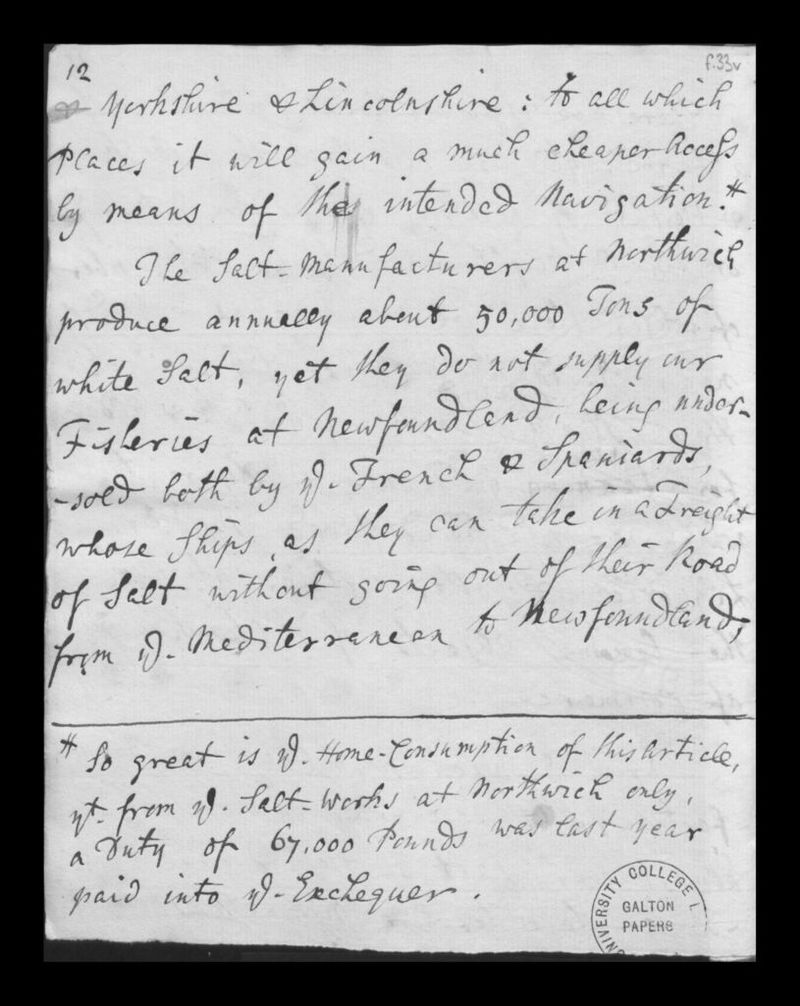 12
f.33v
& Yorkshire & Lincolnshire : to all which
Places it will gain a much cheaper Access
by means of the intended Navigation.#
The Salt-Manufacturers at Northwich
produce annually about 50,000 Tons of
white Salt, yet they do not supply our
Fisheries at Newfoundland, being under-
-sold both by ye. French & Spaniards,
whose Ships, as they can take in a Freight
of Salt without going out of their Road
from ye. Mediterranean to Newfoundland;
# So great is ye. Home-Consumption of this Article,
yt. from ye. Salt-Works at Northwich only,
a Duty of 67,000 Pounds was last year
paid into ye-Exchequer.
UNIVERSITY COLLEGE L
GALTON
PAPERS